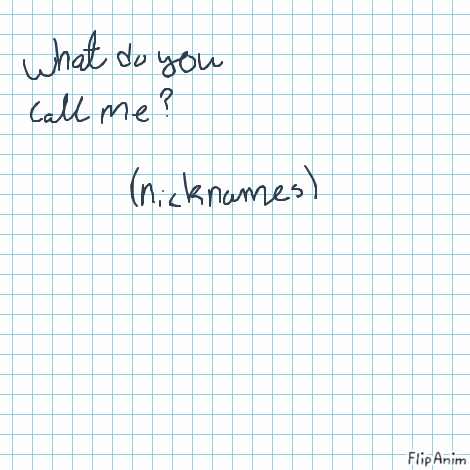 What do you
call me?
(nicknames)
FlipAnim